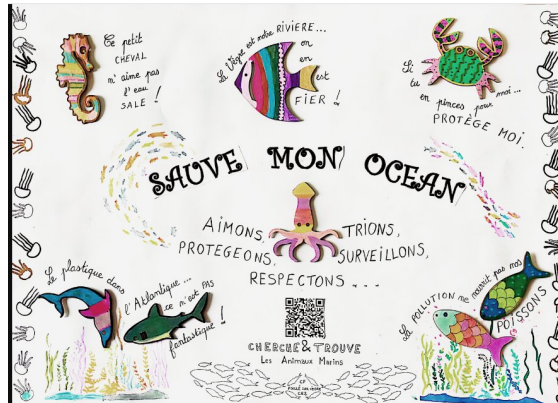 Ce petit
CHEVAL
n'aime pas
l'eau
SALE !
La Vègre est notre RIVIERE...
on
en
est
FIER !
Si
tu
en pinces pour moi...
PROTÈGE MOI.
SAUVE MON OCEAN
AIMONS, TRIONS,
PROTEGEONS, SURVEILLONS,
RESPECTONS ...
Le plastique dans
l'Atlantique...
ce n'est PAS
fantastique !
La POLLUTION ne nourrit pas nos
POISSONS
CHERCHE & TROUVE
Les Animaux Marins
CP